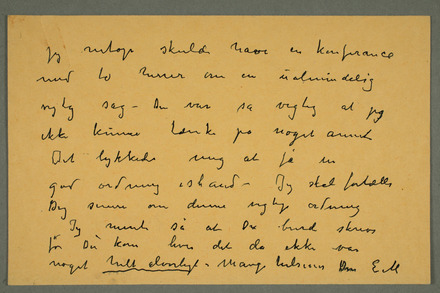 jeg netop skulde have en konference
med to herrer om en ualmindelig
vigtig sag – Den var så vigtig at jeg
ikke kunne tænke på noget andet
Det lykkedes mig at få en
god ordning istand – Jeg skal fortælle
Dig senere om denne vigtige ordning
Jeg mente så at Du burde skrive
før Du kom hvis det da ikke var
noget helt alvorligt – Mange hilsener Din E